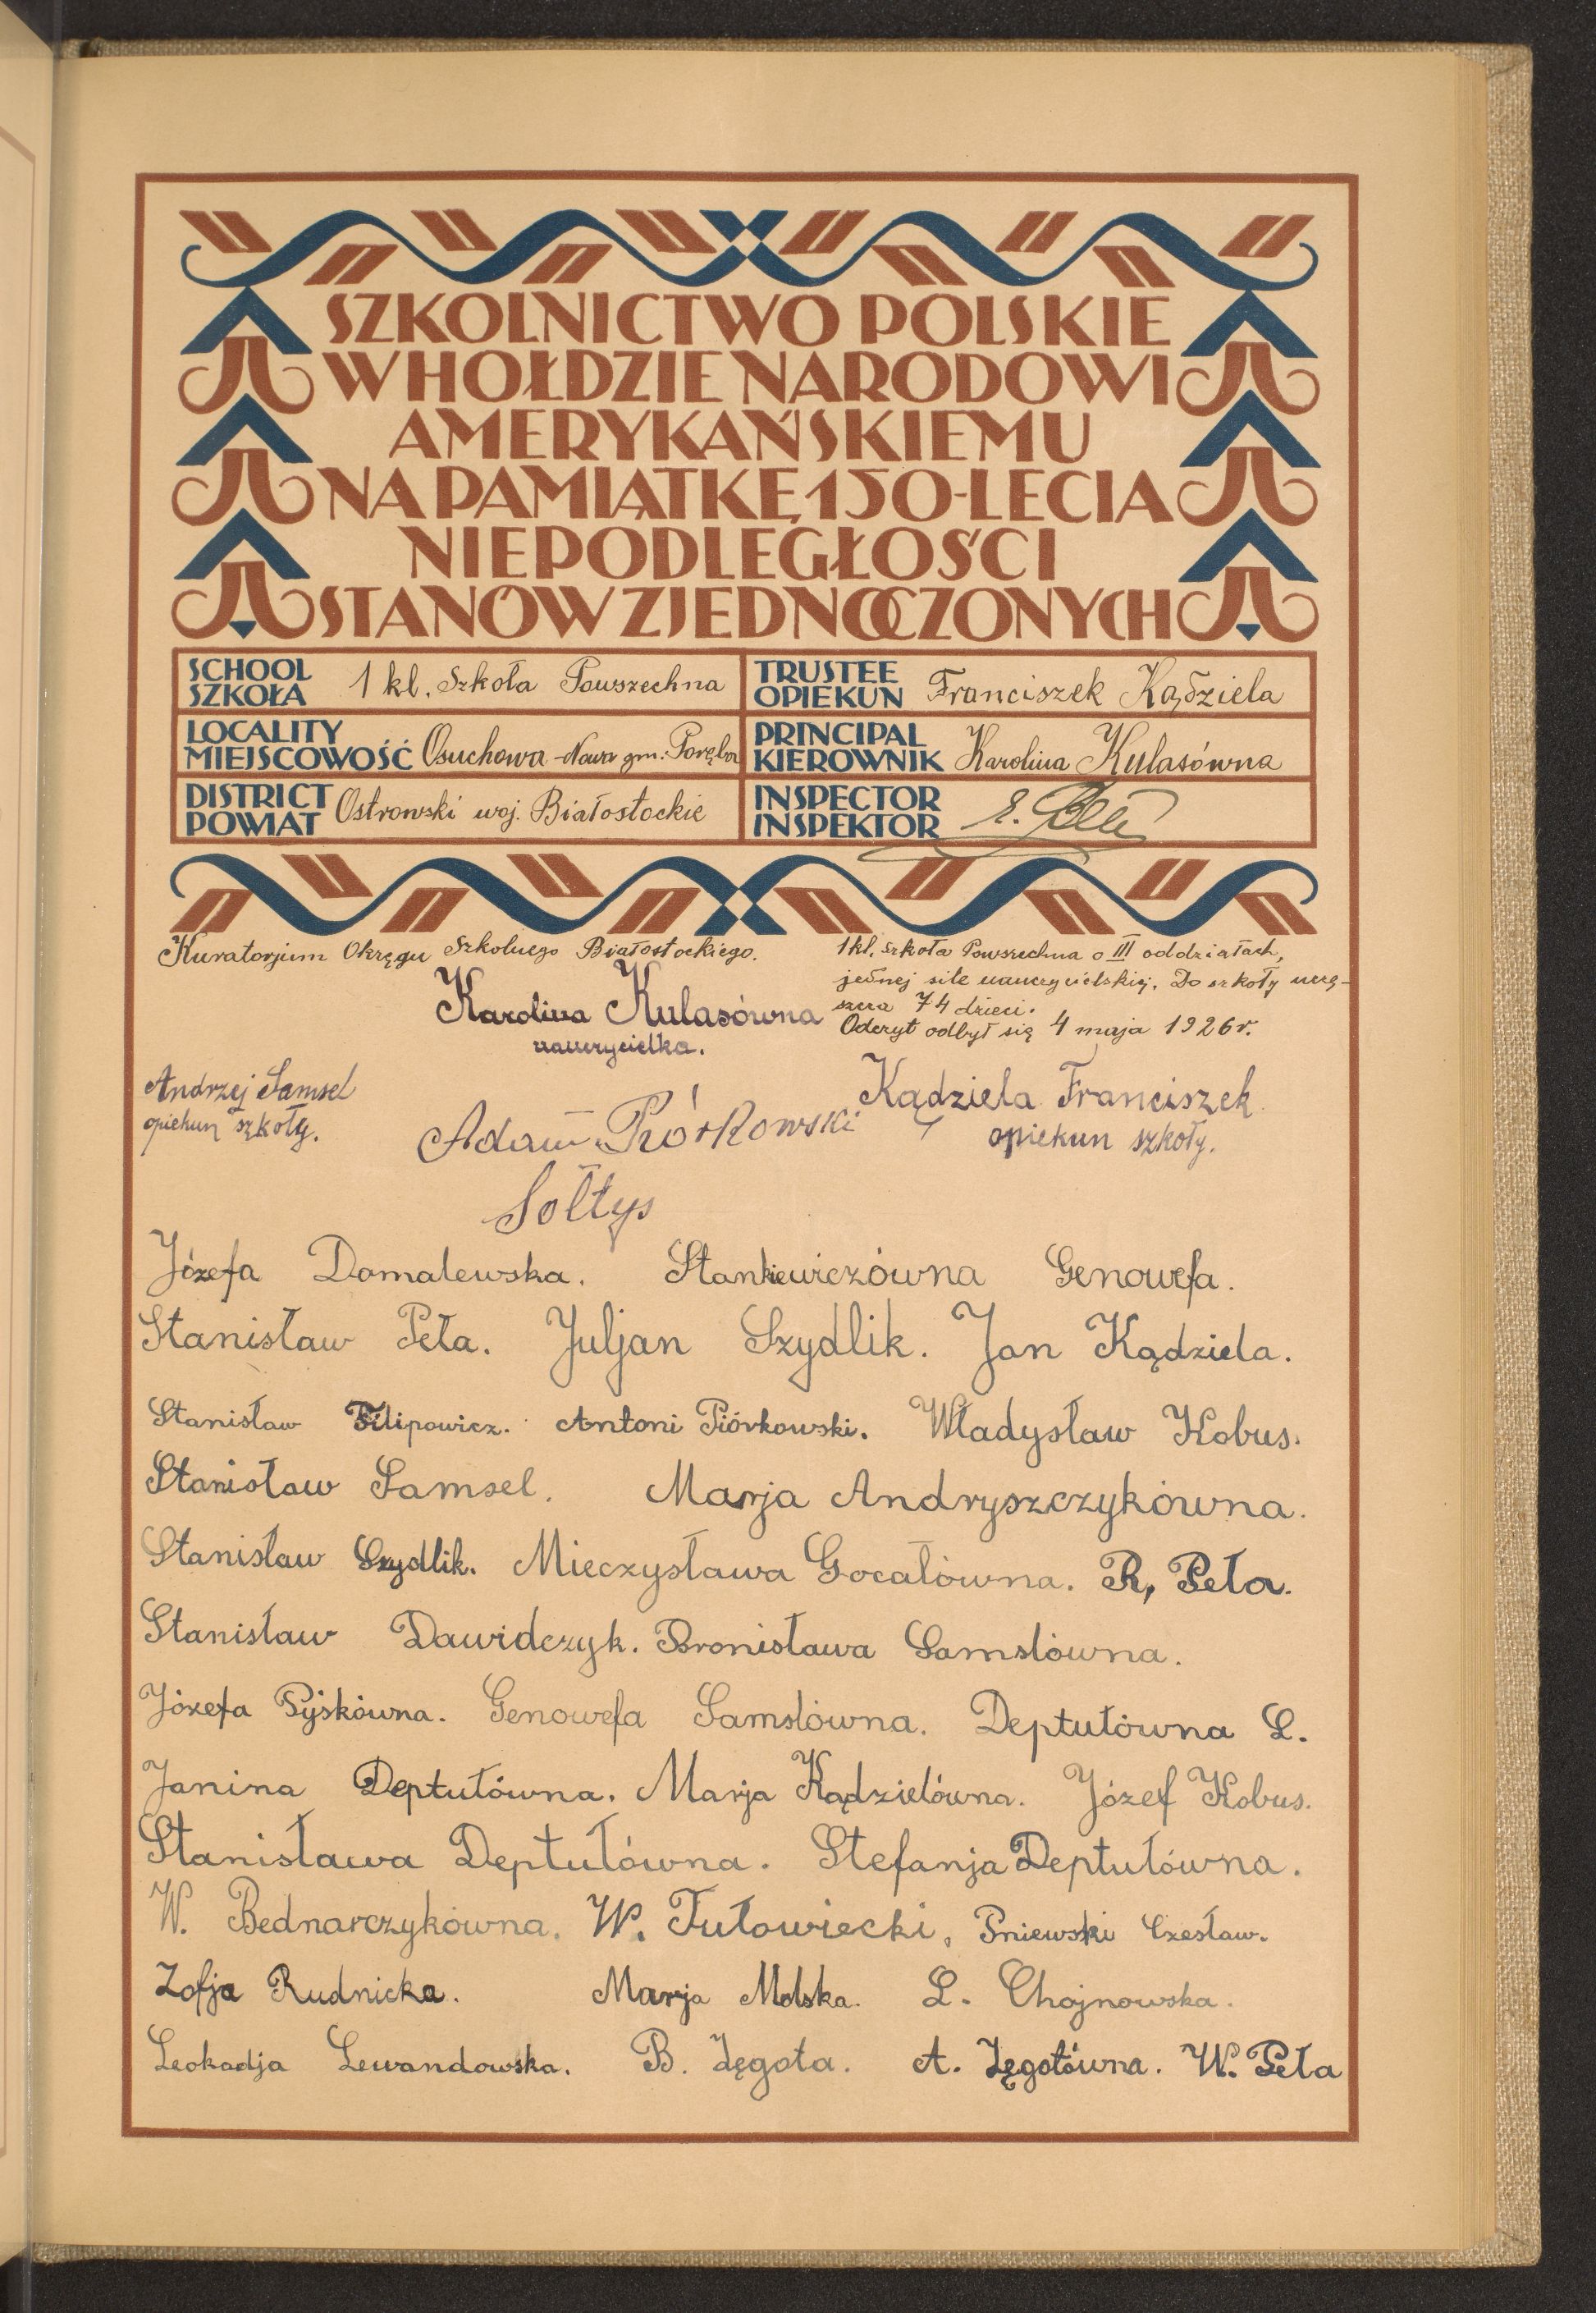 SZKOLNICTWO POLSKIE
W HOŁDZIE NARODOWI
AMERYKAŃSKIEMU
NA PAMIĄTKĘ 150-LECIA
NIEPODLEGŁOŚCI
STANÓW ZJEDNOCZONYCH
SCHOOL
SZKOŁA 1 kl. Szkoła Powszechna
TRUSTEE
OPIEKUN Franciszek Kądziela
LOCALITY
MIEJSCOWOŚĆ Osuchowa-Nowa gm. Poręba
PRINCIPAL
KIEROWNIK Karolina Kulasówna
DISTRICT
POWIAT Ostrowski woj. Białostockie
INSPECTOR
INSPEKTOR
Kuratorjum Okręgu Szkolnego Białostockiego.
1 kl. Szkoła Powszechna o III oddziałach,
jednej sile nauczycielskiej. Do szkoły uczę-
szcza 74 dzieci.
Odczyt odbył się 4 maja 1926 r.
Karolina Kulasówna
nauczycielka.
Andrzej Samsel
opiekun szkoły.
Adam Piórkowski
Sołtys
Kądziela Franciszek
opiekun szkoły.
Józefa Domalewska. Stankiewiczówna Genowefa.
Stanisław Peła. Juljan Szydlik. Jan Kądziela.
Stanisław Filipowicz. Antoni Piórkowski. Władysław Kobus.
Stanisław Samsel. Marja Andryszczykówna.
Stanisław Szydlik. Mieczysława Gocałówna. R, Peła.
Stanisław Dawidczyk. Bronisława Samslówna.
Józefa Pyśkówna. Genowefa Samslówna. Deptułówna L.
Janina Deptułówna. Marja Kądzielówna. Józef Kobus.
Stanisława Deptułówna. Stefanja Deptułówna.
W. Bednarczykówna. W. Tułowiecki, Pniewski Czesław.
Zofja Rudnicka. Marja Molska. L. Chojnowska.
Leokadja Lewandowska. B. Zęgota. A. Zęgotówna. W. Peła